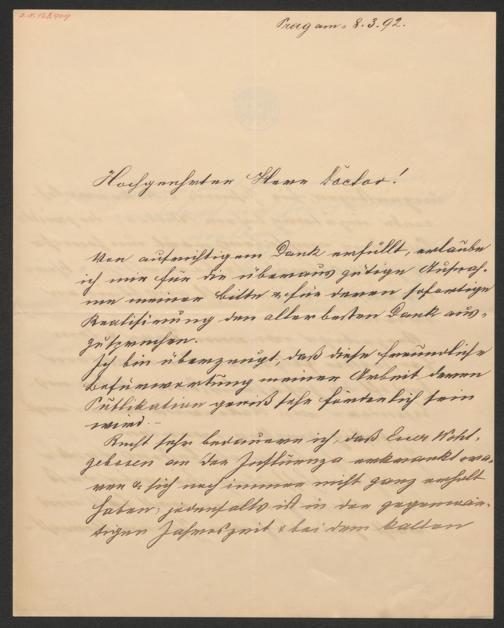 Prag am 8.3.92.
Hochgeehrter Herr Doctor!
Von aufrichtigem Dank erfüllt, erlaube
ich mir für die überaus gütige Aufnah-
me meiner Bitte & für deren sofortige
Realisierung den allerbesten Dank aus-
zusprechen.
Ich bin überzeugt, daß diese freundliche
Befürwortung meiner Arbeit deren
Publikation gewiß sehr förderlich sein
wird. –
Recht sehr bedauere ich, daß Euer Wohl-
geboren an der Influenza erkrankt wa-
ren & sich noch immer nicht ganz erholt
haben; jedenfalls ist in der gegenwär-
tigen Jahreszeit & bei dem kalten